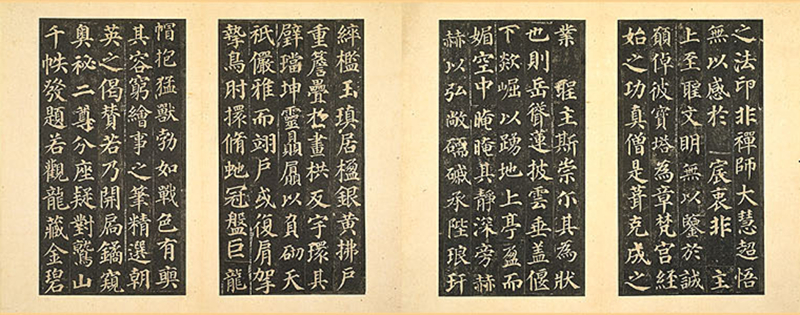 之法印非禪師大慧超悟
無以感於 宸衷非 主
上至聖文明無以鑒於誠
願倬彼寶塔為章梵宮經
始之功真僧是葺克成之
業 聖主斯崇尔其為狀
也則岳聳蓮披雲垂盖偃
下欻崛以踊地上亭盈而
媚空中晻晻其靜深旁赫
赫以弘敞礝磩承陛琅玕
綷檻玉瑱居楹銀黃拂戶
重簷疊於畫栱反宇環其
璧璫坤靈贔屭以負砌天
祇儼雅而翊戶或復肩拏
摯鳥肘擐脩虵冠盤巨龍
帽抱猛獸勃如戰色有奭
其容窮繪事之筆精選朝
英之偈贊若乃開扃鐍窺
奧秘二尊分座疑對鷲山
千帙發題若觀龍藏金碧